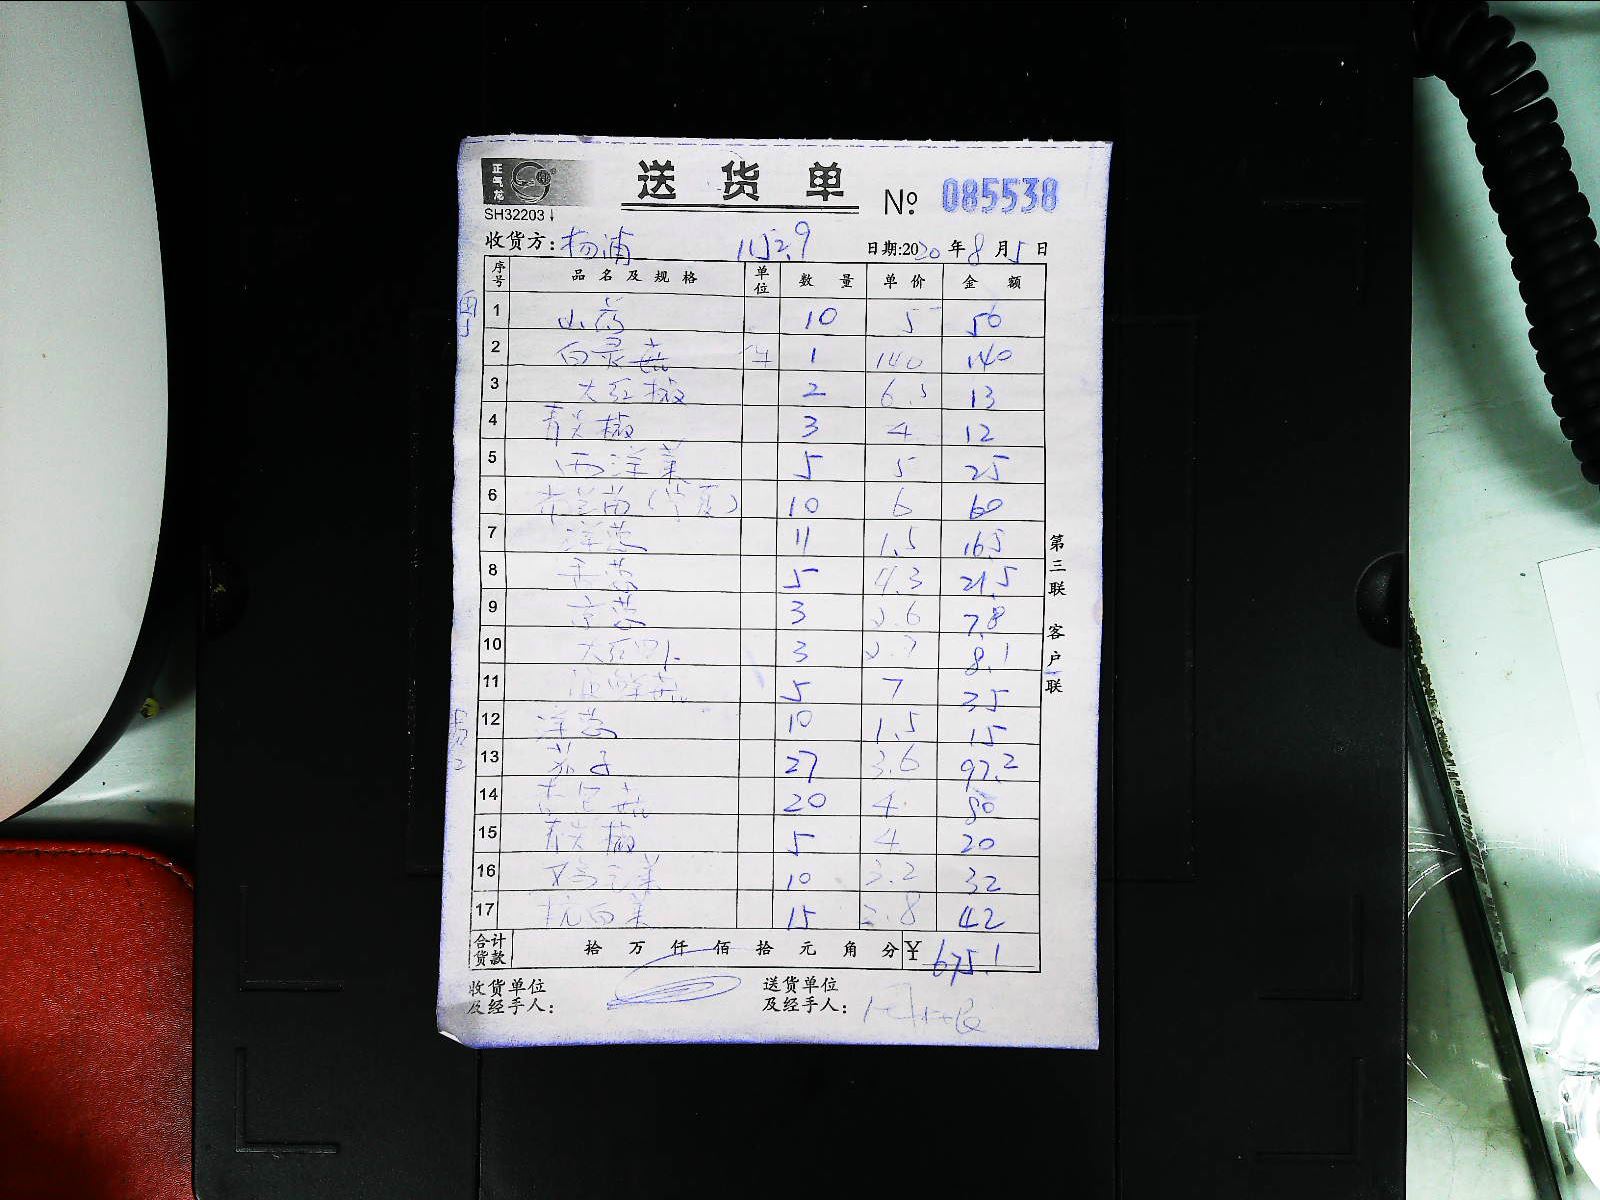 正气龙
送货单 № 085538
SH32203
收货方: 杨浦 1152.9 日期:2020年8月5日
序号 品名及规格 单位 数量 单价 金额
1 山药 10 5 50
2 白灵菇 件 1 140 140
3 大红椒 2 6.5 13
4 青尖椒 3 4 12
5 西洋菜 5 5 25
6 (宁夏) 10 6 60
7 洋葱 11 1.5 16.5
8 香葱 5 4.3 21.5
9 京葱 3 2.6 7.8
10 大红 3 2.7 8.1
11 海鲜菇 5 7 35
12 洋葱 10 1.5 15
13 茄子 27 3.6 97.2
14 杏包菇 20 4 80
15 青尖椒 5 4 20
16 菜 10 3.2 32
17 杭白菜 15 2.8 42
合计货款 拾万仟佰拾元角分 ¥ 675.1
收货单位及经手人: 送货单位及经手人:
第三联 客户联